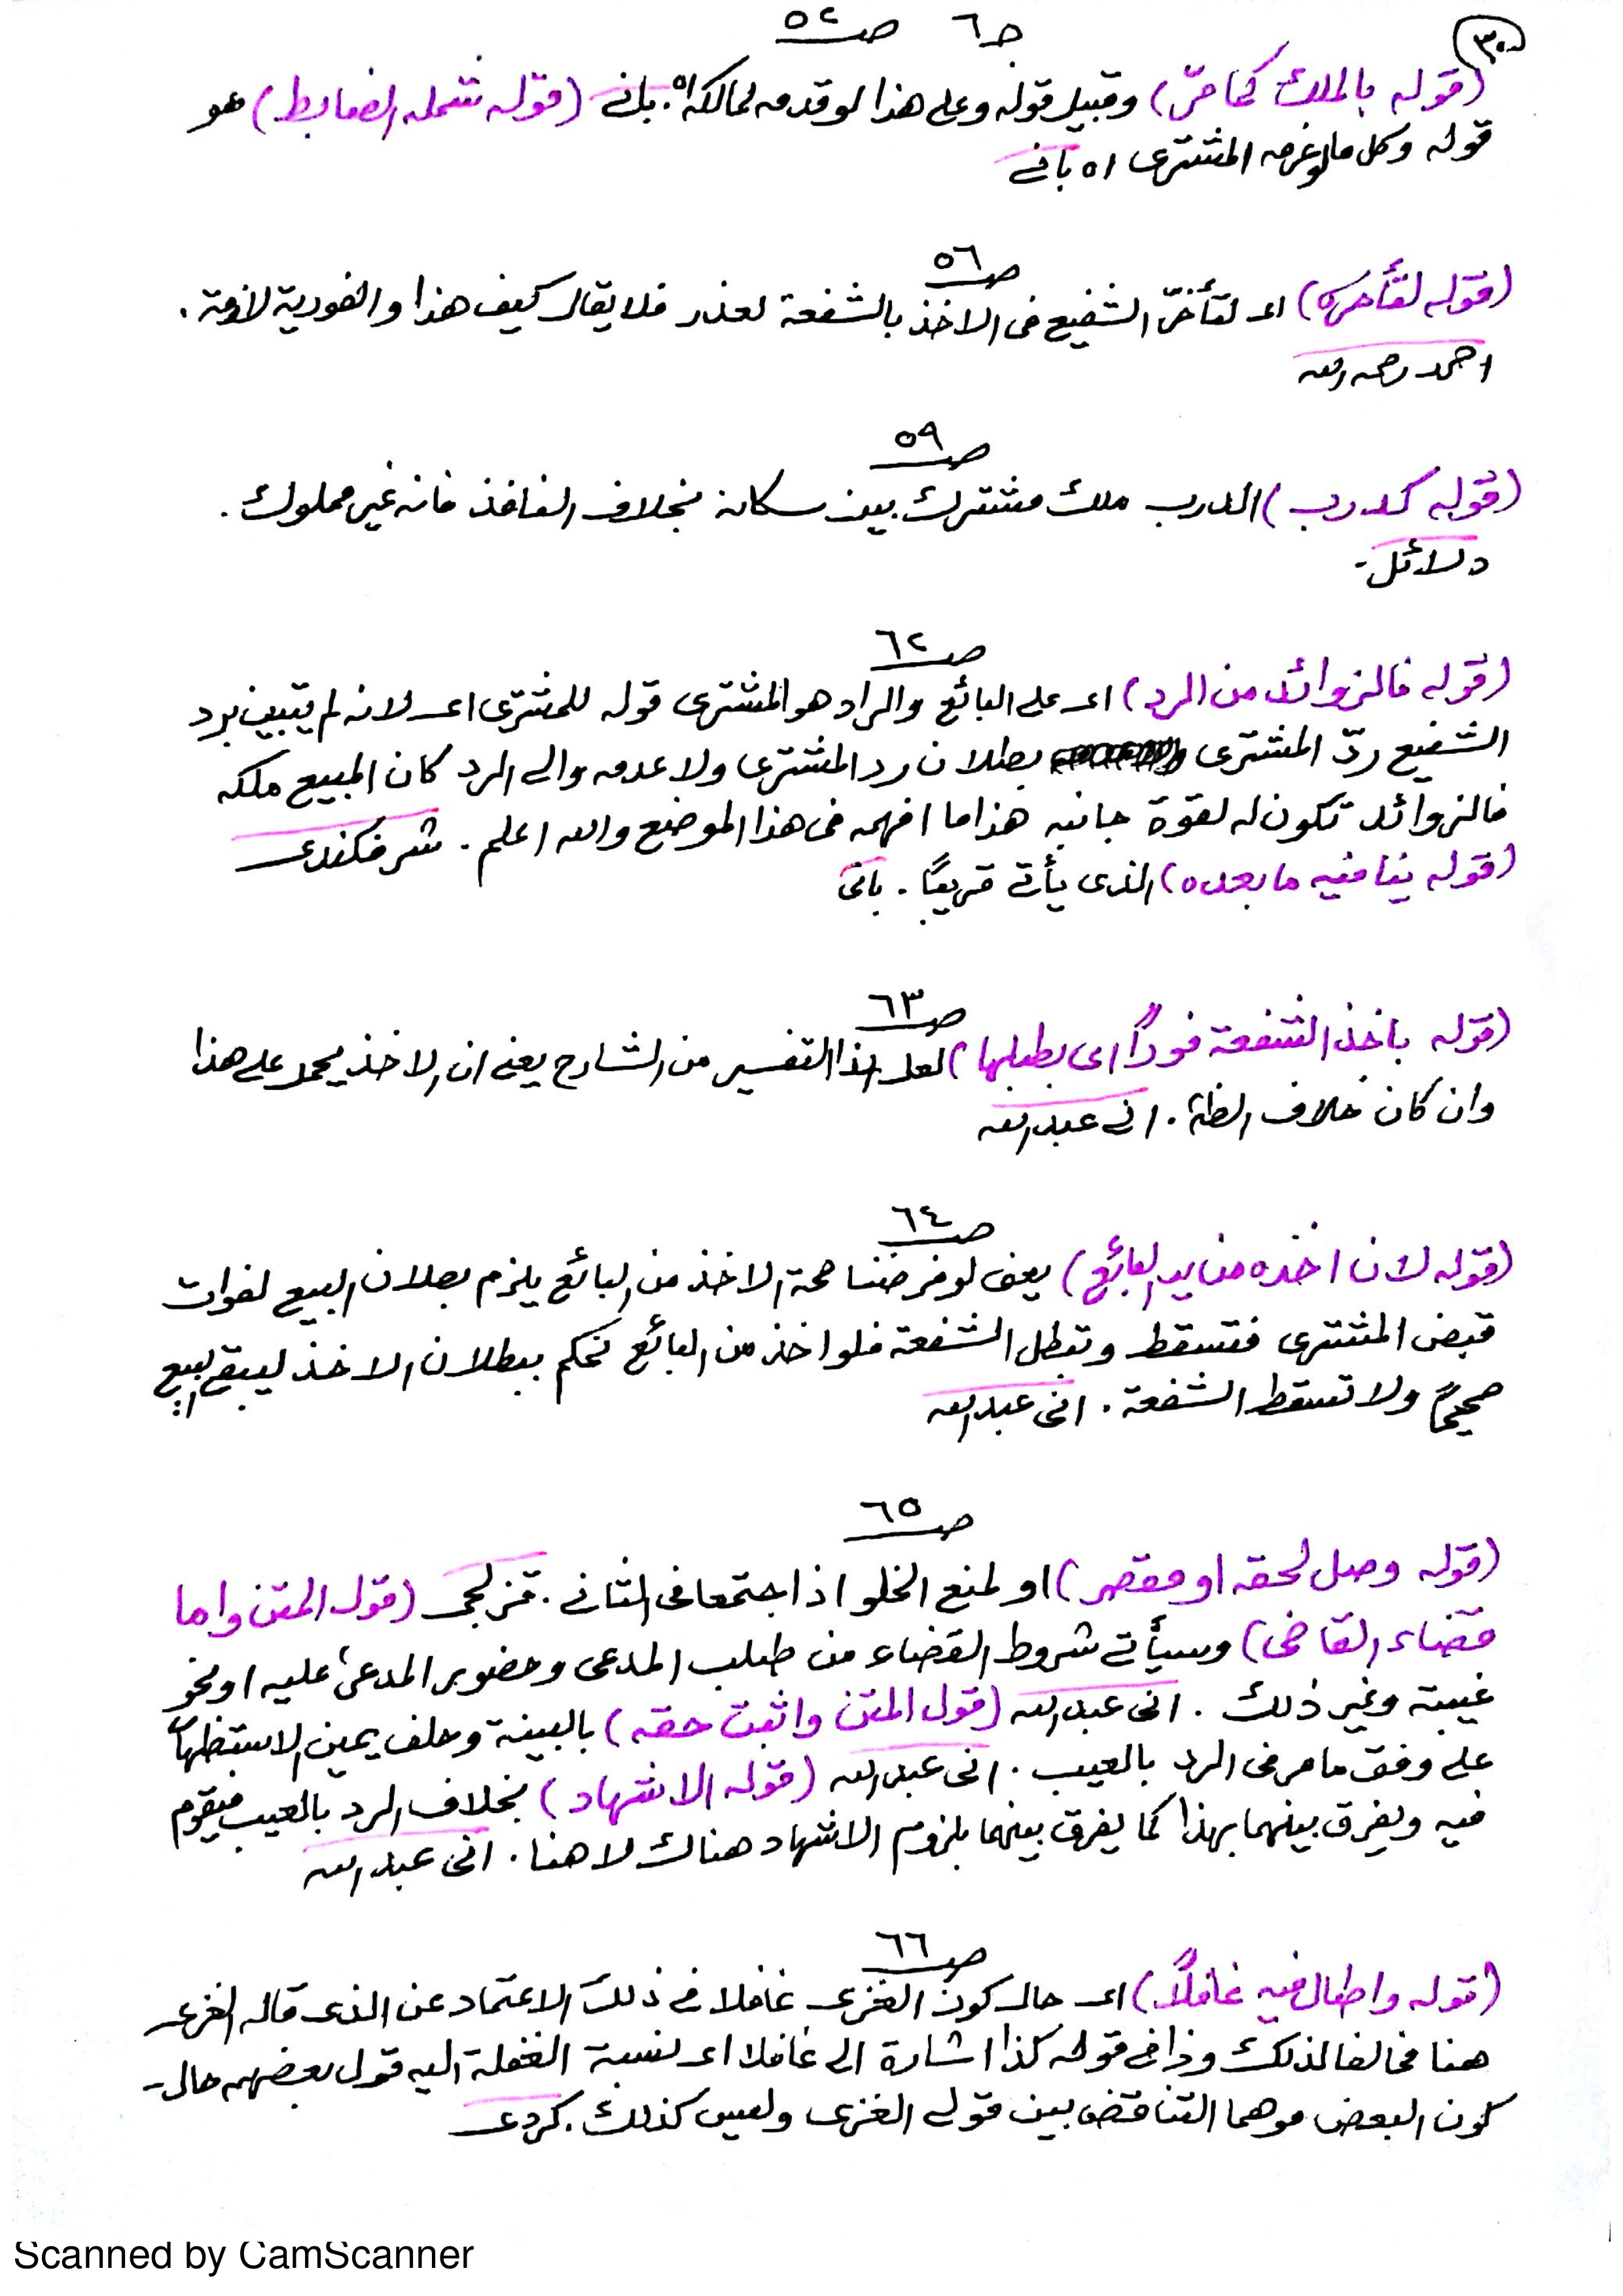 ٣٠٠
ج٦ ص ٥٢
(قوله بالملك كما مرّ) وقبيل قوله وعلى هذا لو قدمه لمالكه اه. بانى (قوله شمله الضابط) هو
قوله وكل ما لو غرمه المشترى اه بانى
ص ٥٦
(قوله لتأخره) اى لتأخّر الشفيع فى الاخذ بالشفعة لعذر فلا يقال كيف هذا والفورية لازمة.
احمد رحمه الله
ص ٥٩
(قوله كدرب) الدرب ملك مشترك بين سكانه بخلاف النافذ فانه غير مملوك.
دلائل
ص ٦٢
(قوله فالزوائد من الرد) اى على البائع والراد هو المشترى قوله للمشترى اى لانه لم يتبين برد
الشفيع ردّ المشترى بطلان رد المشترى ولا عدمه والى الرد كان المبيع ملكه
فالزوائد تكون له لقوة جانبه هذا ما افهمه فى هذا الموضع والله اعلم. شرفكندى
(قوله ينافيه ما بعده) الذى يأتى قريبًا. بانى
ص ٦٣
(قوله باخذ الشفعة فورًا اى بطلبها) لعل هذا التفسير من الشارح يعنى ان الاخذ يحمل على هذا
وان كان خلاف الظاهر. انى عبد الله
ص ٦٤
(قوله لان اخذه من يد البائع) يعنى لو فرضنا صحة الاخذ من البائع يلزم بطلان البيع لفوات
قبض المشترى فتسقط وتبطل الشفعة فلو اخذ من البائع نحكم ببطلان الاخذ ليبقى البيع
صحيحًا ولا تسقط الشفعة. انى عبد الله
ص ٦٥
(قوله وصل لحقه او مقصر) او لمنع الخلو اذ اجتمعا فى الثانى. قزلجى (قول المتن واما
قضاء القاضى) وسيأتى شروط القضاء من طلب المدعى وحضور المدعى عليه او نحو
غيبته وغير ذلك. انى عبد الله (قول المتن واثبت حقه) بالبينة وحلف يمين الاستظهار
على وفق ما مر فى الرد بالعيب. انى عبد الله (قوله الاشهاد) بخلاف الرد بالعيب فيقوم
فيه ويفرق بينهما بهذا كما يفرق بينهما بلزوم الاشهاد هناك لا هنا. انى عبد الله
ص ٦٦
(قوله واطال فيه غافلًا) اى حال كون الغزى غافلا فى ذلك الاعتماد عن الذى قاله الغزى
هنا مخالفا لذلك وذا فى قوله كذا اشارة الى غافلا اى لنسبة الغفلة اليه قول بعضهم حال
كون البعض موهما التناقض بين قولى الغزى وليس كذلك. كردى
Scanned by CamScanner